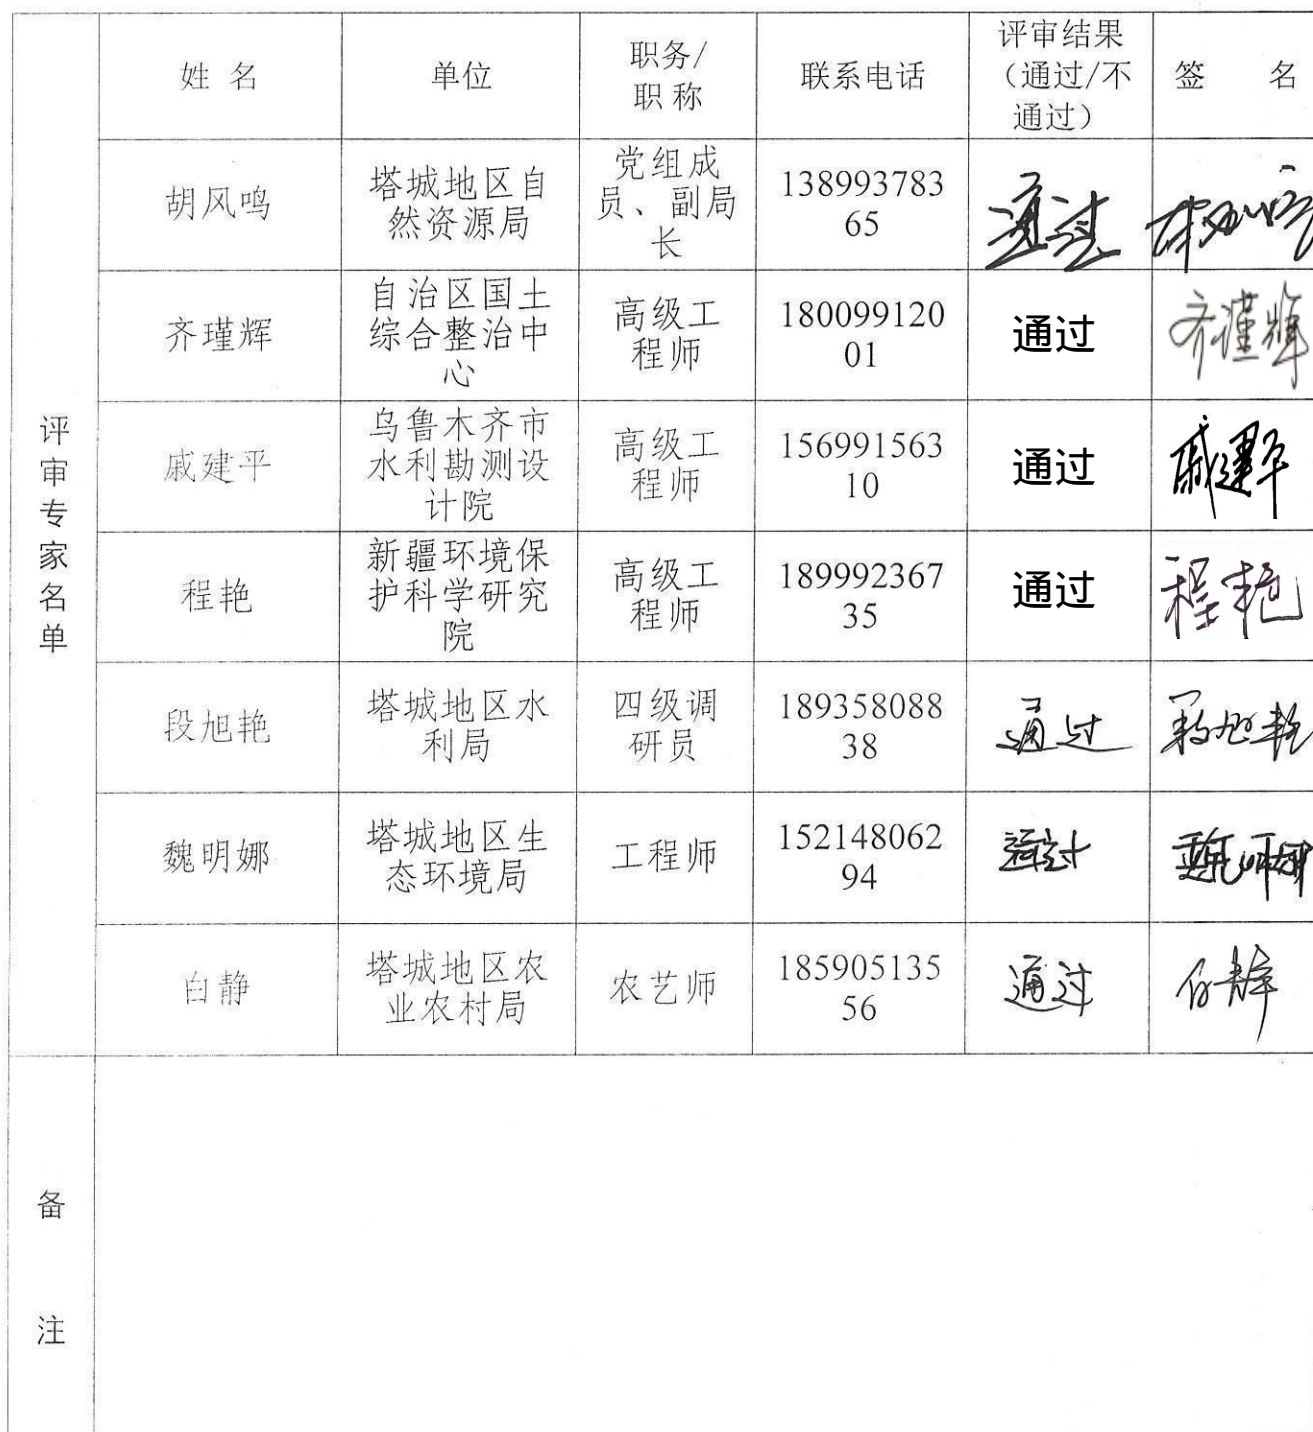 评审专家名单
姓 名
单位
职务/
职称
联系电话
评审结果
（通过/不
通过）
签 名
胡风鸣
塔城地区自
然资源局
党组成
员、副局
长
138993783
65
通过
齐瑾辉
自治区国土
综合整治中
心
高级工
程师
180099120
01
通过
齐瑾辉
戚建平
乌鲁木齐市
水利勘测设
计院
高级工
程师
156991563
10
通过
戚建平
程艳
新疆环境保
护科学研究
院
高级工
程师
189992367
35
通过
程艳
段旭艳
塔城地区水
利局
四级调
研员
189358088
38
通过
段旭艳
魏明娜
塔城地区生
态环境局
工程师
152148062
94
通过
魏明娜
白静
塔城地区农
业农村局
农艺师
185905135
56
通过
白静
备
注